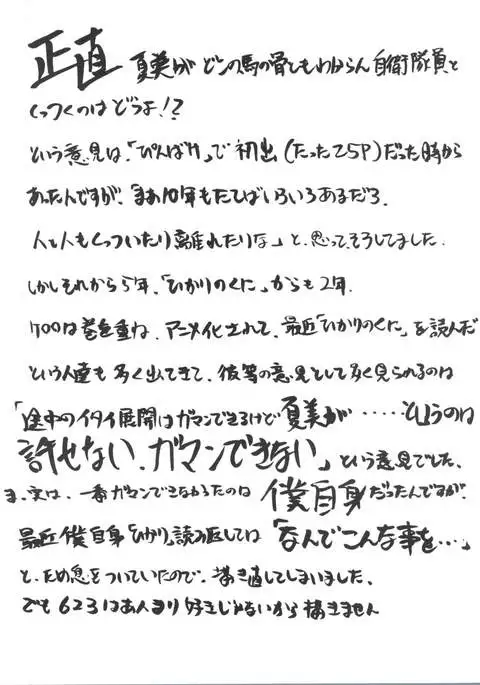 正直 夏美が どこの馬の骨ともわからん 自衛隊員と
くっつくのはどうよ!?
という意見は、「ぴんぱけ」で初出(たった25P)だった時から
あったんですが、「まあ10年もたてばいろいろあるだろ、
人と人もくっついたり離れたりな」と、思って、そうしてました。
しかしそれから5年、「ひかりのくに」からも2年、
ケロロは巻を重ね、アニメ化されて、最近「ひかりのくに」を読んだ
という人達も多く出てきて、彼等の意見として多く見られるのは
「途中のイタイ展開はガマンできるけど夏美が……というのは
許せない、ガマンできない」という意見でした、
ま、実は、一番ガマンできなかったのは 僕自身だったんですが、
最近僕自身「ひかり」読み返しては「なんでこんな事を…」
と、ため息をついていたので、描き直してしまいました、
でも 623はあんまり好きじゃないから描きません